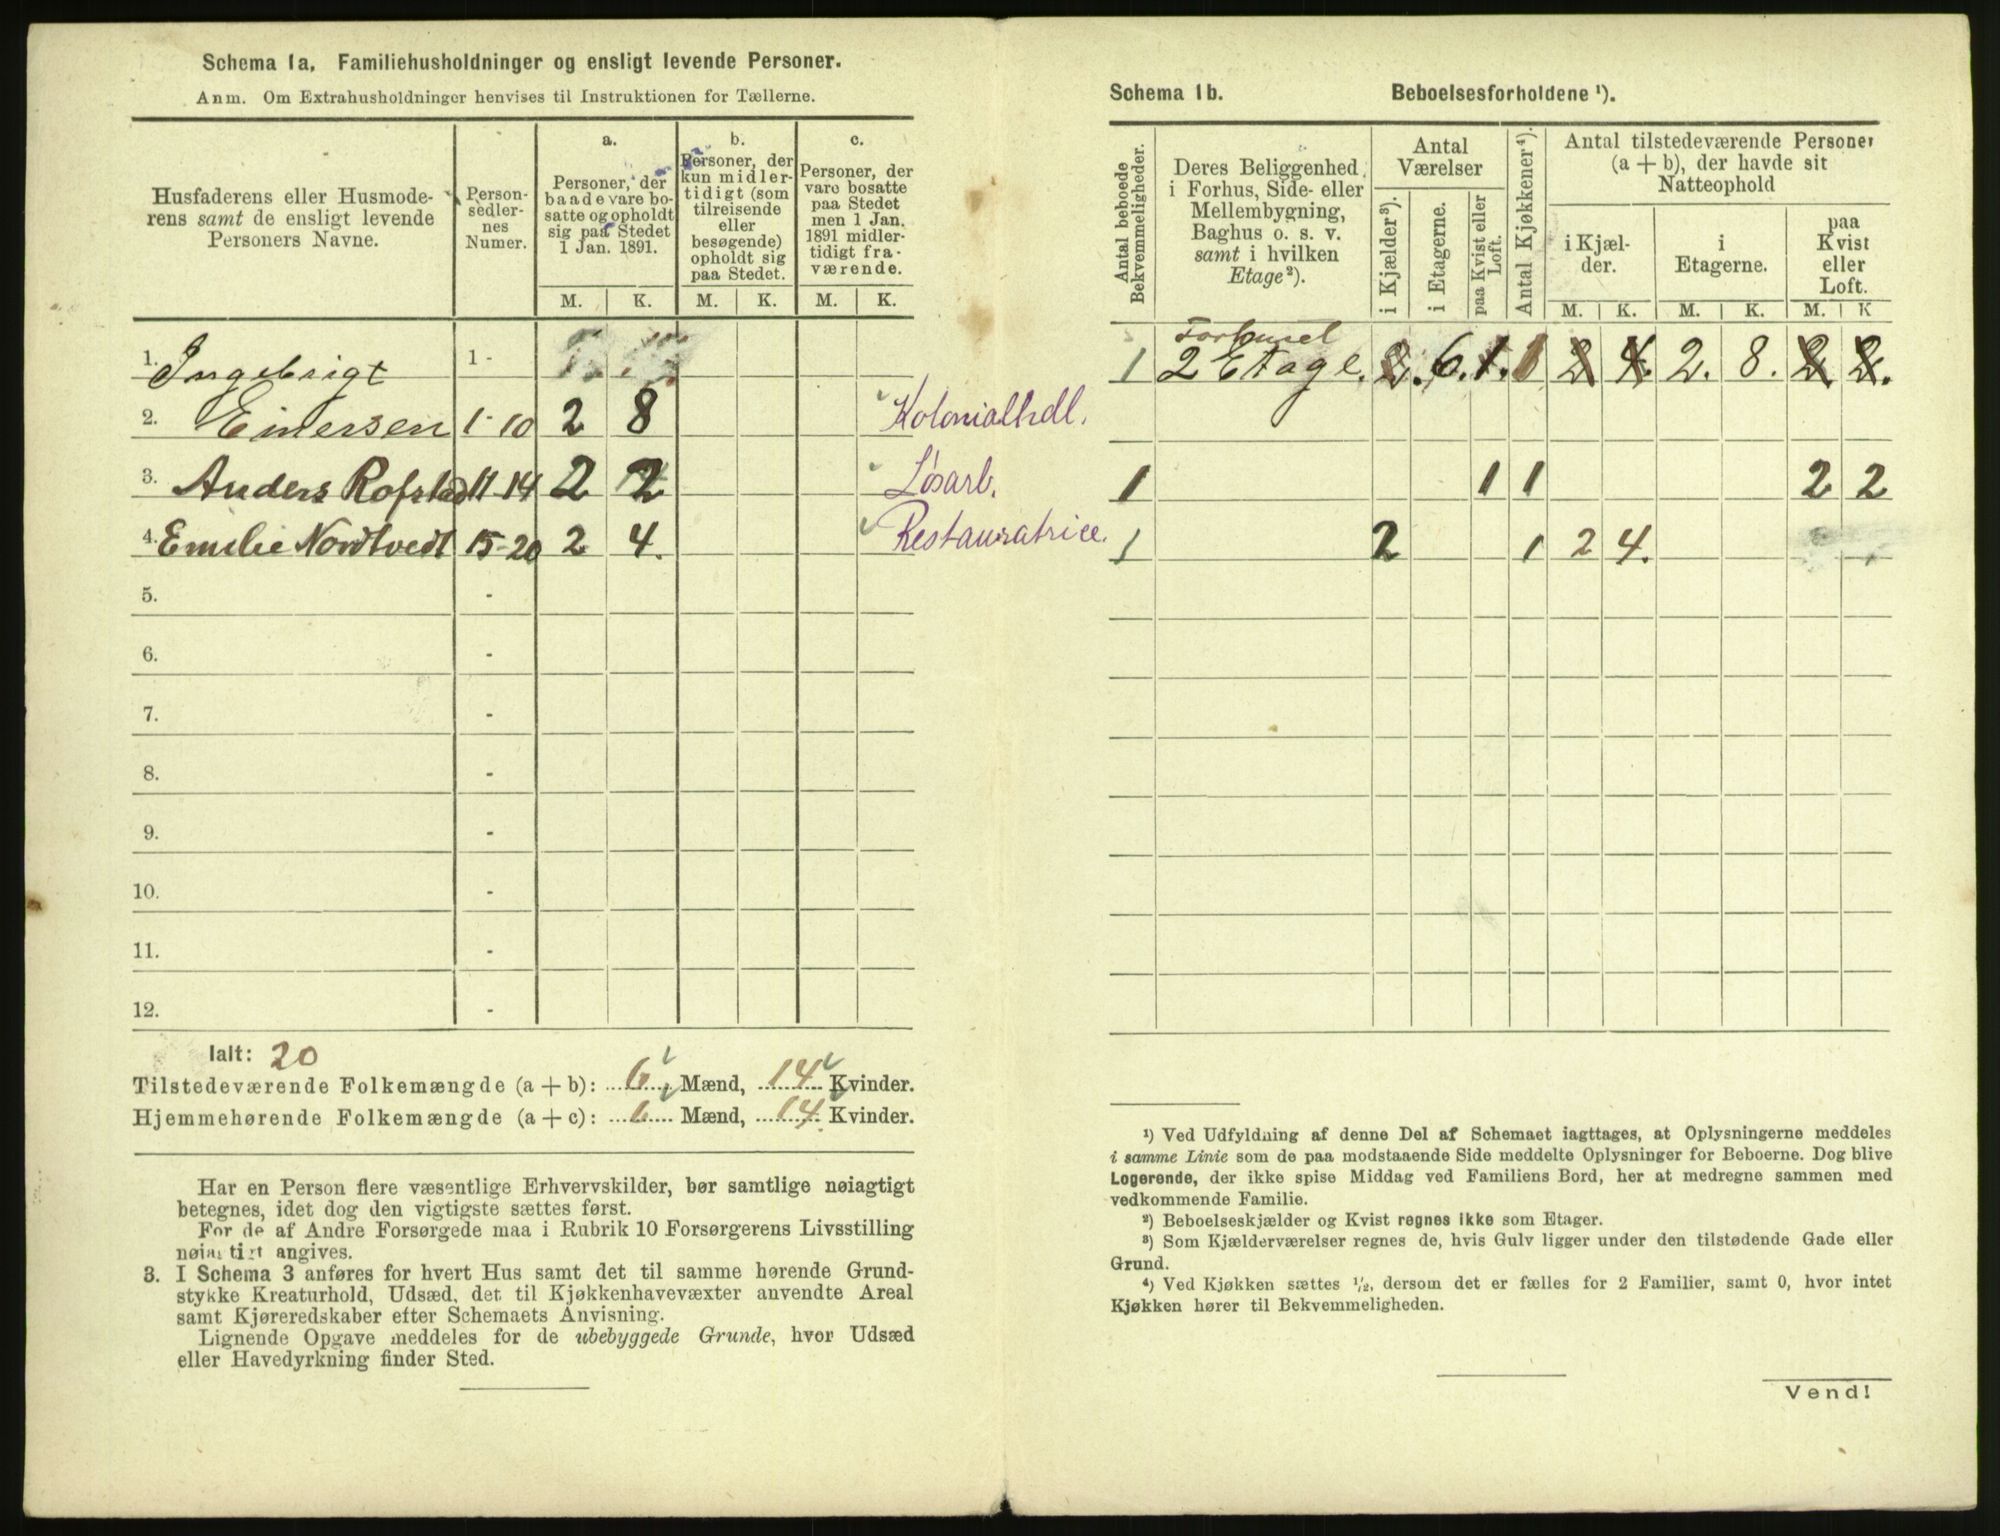 Schema 1a. Familiehusholdninger og ensligt levende Personer.
Anm. Om Extrahusholdninger henvises til Instruktionen for Tællerne.
Husfaderens eller Husmode-
rens samt de ensligt levende
Personers Navne.
Person-
sedler-
nes
Numer.
a.
Personer, der
baade vare bo-
satte og opholdt
sig paa Stedet
1 Jan. 1891.
b.
Personer, der
kun midler-
tidigt (som
tilreisende
eller
besøgende)
opholdt sig
paa Stedet.
c.
Personer, der
vare bosatte
paa Stedet
men 1 Jan.
1891 midler-
tidigt fra-
værende.
M. K. M. K. M. K.
1. Ingebrigt 1 -
2. Einersen 1 - 10 2 8 Kolonialhdl.
3. Anders Rofstad 11 - 14 2 2 Løsarb.
4. Emilie Nordtvedt 15 - 20 2 4. Restauratrice.
5. -
6. -
7. -
8. -
9. -
10. -
11. -
12. -
Ialt: 20
Tilstedeværende Folkemængde (a + b): 6 Mænd, 14 Kvinder.
Hjemmehørende Folkemængde (a + c): 6 Mænd, 14 Kvinder.
Har en Person flere væsentlige Erhvervskilder, bør samtlige nøiagtigt
betegnes, idet dog den vigtigste sættes først.
For de af Andre Forsørgede maa i Rubrik 10 Forsørgerens Livsstilling
nøiagtigt angives.
3. I Schema 3 anføres for hvert Hus samt det til samme hørende Grund-
stykke Kreaturhold, Udsæd, det til Kjøkkenhavevæxter anvendte Areal
samt Kjøreredskaber efter Schemaets Anvisning.
Lignende Opgave meddeles for de ubebyggede Grunde, hvor Udsæd
eller Havedyrkning finder Sted.
Schema 1b. Beboelsesforholdene ¹).
Antal beboede
Bekvemmeligheder.
Deres Beliggenhed
i Forhus, Side- eller
Mellembygning,
Baghus o. s. v.
samt i hvilken
Etage²).
Antal
Værelser
i Kjælder³).
i Etagerne.
paa Kvist eller
Loft.
Antal Kjøkkener⁴).
Antal tilstedeværende Personer
(a + b), der havde sit
Natteophold
i Kjæl-
der.
i
Etagerne.
paa
Kvist
eller
Loft.
M. K. M. K. M. K
Forhuset
1 2 Etage. 2. 6. 1. 1 2 4. 2. 8. 2. 2.
1 1 1 2 2
1 2 1 2 4.
¹) Ved Udfyldning af denne Del af Schemaet iagttages, at Oplysningerne meddeles
i samme Linie som de paa modstaaende Side meddelte Oplysninger for Beboerne. Dog blive
Logerende, der ikke spise Middag ved Familiens Bord, her at medregne sammen med
vedkommende Familie.
²) Beboelseskjælder og Kvist regnes ikke som Etager.
³) Som Kjælderværelser regnes de, hvis Gulv ligger under den tilstødende Gade eller
Grund.
⁴) Ved Kjøkken sættes ½, dersom det er fælles for 2 Familier, samt 0, hvor intet
Kjøkken hører til Bekvemmeligheden.
Vend!